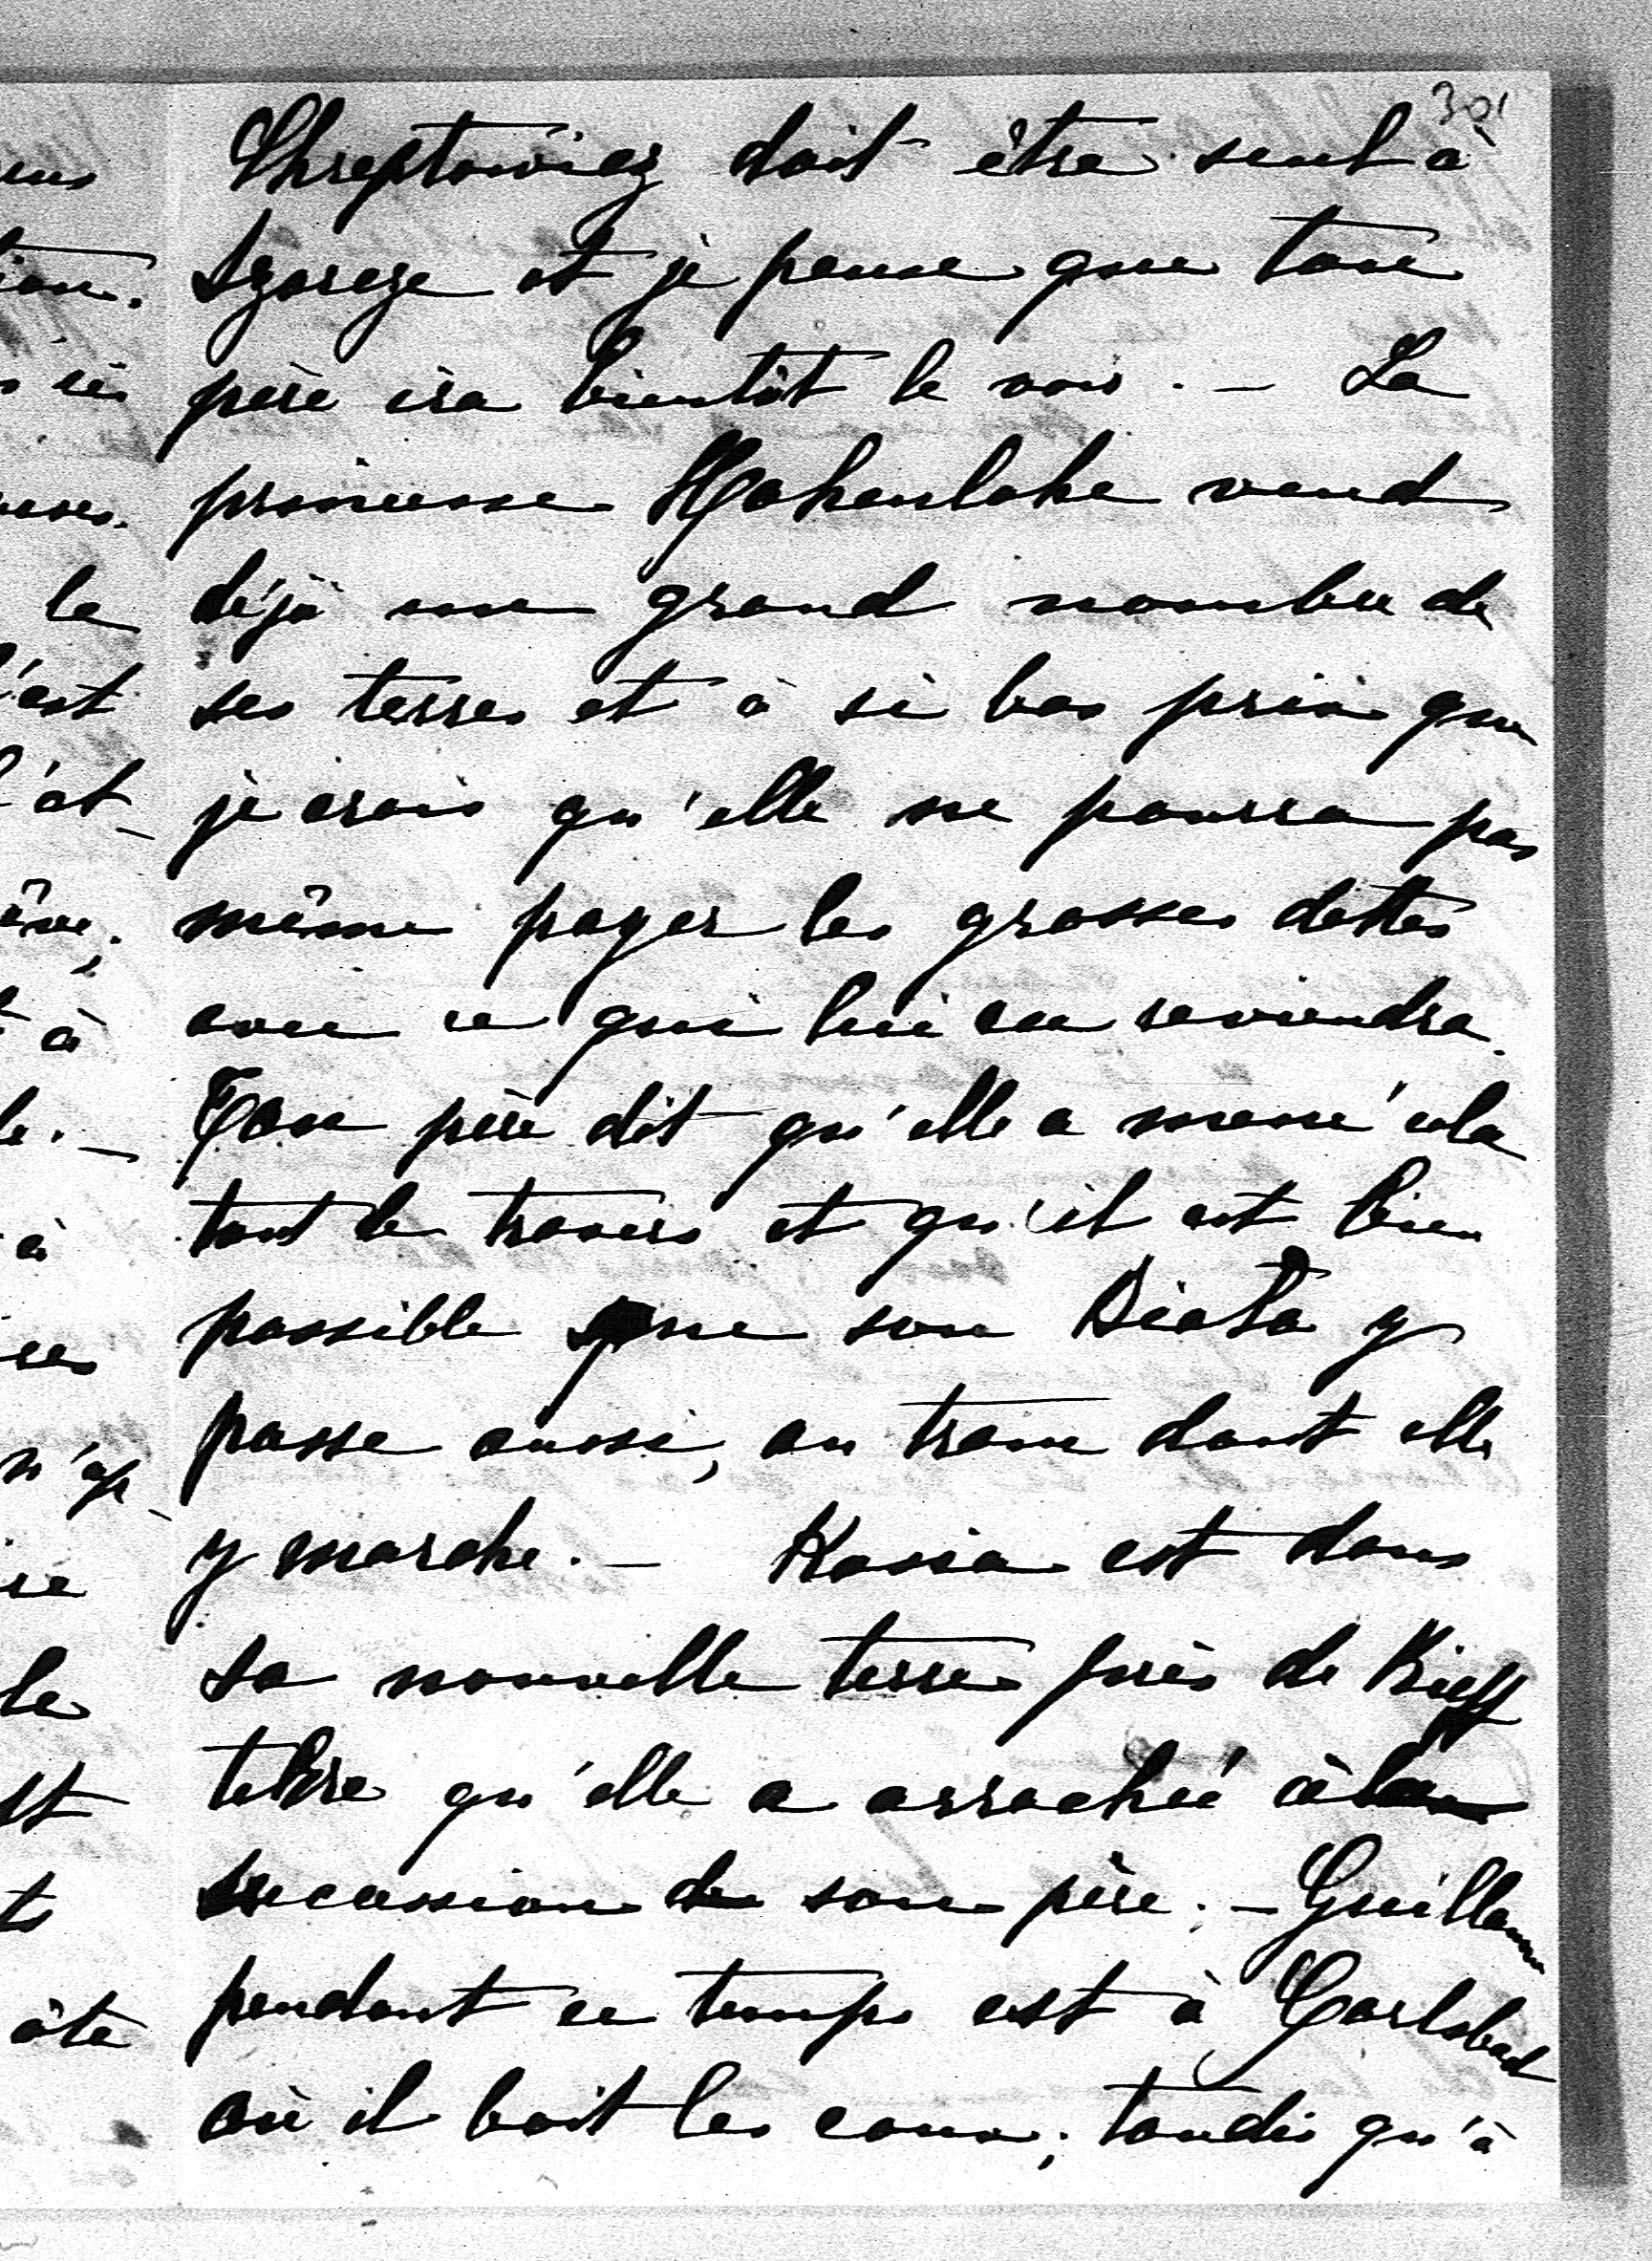 301
Chreptowicz doit être seul à
Szorcze et je pense que ton
père ira bientôt le voir. — La
princesse Hohenlohe vend
déjà un grand nombre de
ses terres et à si bas prix que
je crois qu'elle ne pourra pas
même payer les grosses dettes
avec ce qui lui en reviendra.
Ton père dit qu'elle a mené cela
tout de travers et qu'il est bien
possible que son Biała y
passe aussi, au train dont elle
y marche. — Kasia est dans
sa nouvelle terre près de Kieff
terre qu'elle a arrachée à la
succession de son père. — Guillaume
pendant ce temps est à Carlsbad
où il boit les eaux; tandis qu'à